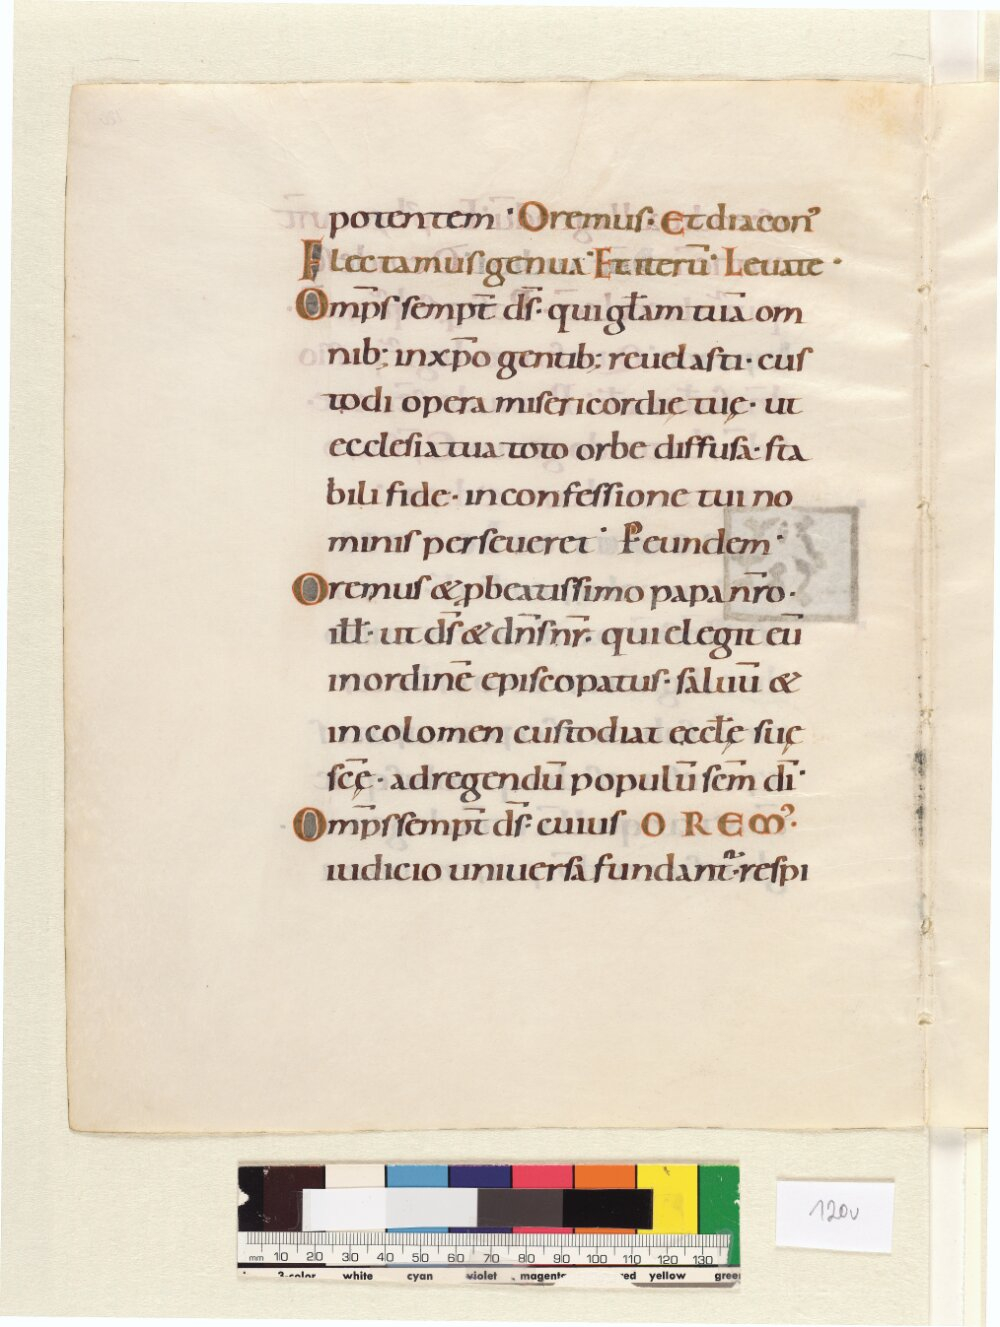 potentem · Oremus · Et diacon̉
Flectamus genua · Et iterū · Leuate ·
Omp̄s sempt̄ d̄s · qui gl̄am tuā om
nib; in xp̄o gentib; reuelasti · cus
todi opera misericordię tuę · ut
ecclesia tua toto orbe diffusa · sta
bili fide · in confessione tui no
minis perseueret · Per eundem ·
Oremus & p beatissimo papa nr̄o ·
ill̄ · ut d̄s & dn̄s nr̄ · qui elegit eū
in ordinē episcopatus · saluū &
incolomen custodiat eccl̄ę suę
sc̄ę · ad regendū populū sc̄m dī ·
Omp̄s sempt̄ d̄s · cuius OREM̉ ·
iudicio uniuersa fundant̄ · respi
120v
mm 10 20 30 40 50 60 70 80 90 100 110 120 130
3-color white cyan violet magenta red yellow green